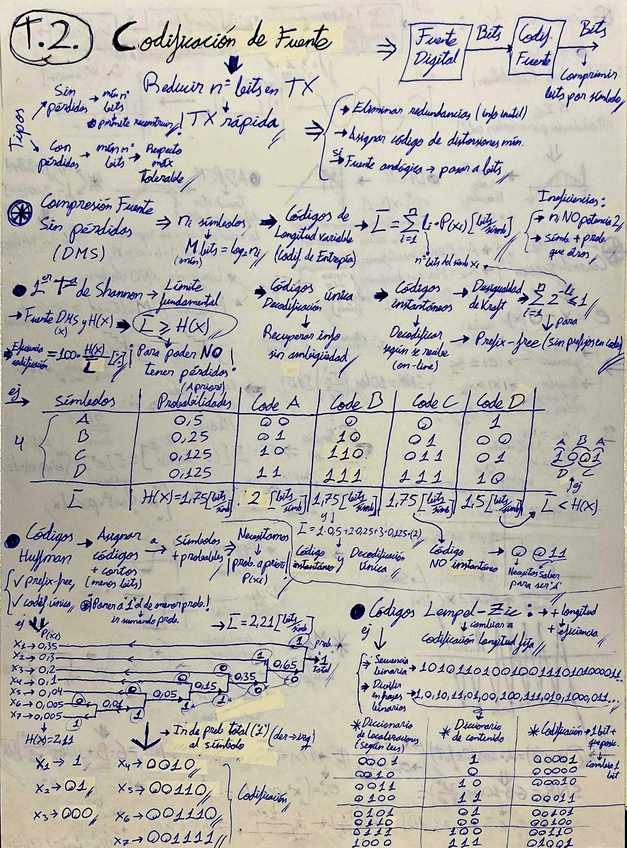 T.2. Codificación de Fuente ⇒ Fuente Digital Bits Codif. Fuente Bits
Comprimir bits por símbolo
Reducir nº bits en TX
TX rápida
Tipos
Sin pérdidas → mín nº bits
permite reconstruir
Con pérdidas → mín nº bits → Respecto máx tolerable
→ Eliminar redundancias (info inutil)
→ Asignar código de distorsiones mín.
Si Fuente analógica → pasar a bits
Compresión Fuente Sin pérdidas (DMS)
⇒ ni símbolos
M bits = log2 ni
(mín)
⇒ Códigos de Longitud variable (Codif. de Entropía)
L = Σ li · P(xi) [bits/simb]
n
i=1
nº bits del simb xi
Ineficiencias:
→ ni NO potencia 2
→ Simb + prob. que otros
1er Tª de Shannon → Límite fundamental
→ Fuente DMS y H(X) ⇒ L ≥ H(X)
(x)
→ Eficiencia codificación = 100 · H(X)/L [%]
¡Para poder NO tener pérdidas! (A priori)
⇒ Códigos Decodificación única
Recuperar info sin ambigüedad
→ Códigos instantáneos → Desigualdad de Kraft → Σ 2^-li ≤ 1
n
i=1
para
Decodificar según se recibe (on-line)
→ Prefix-free (sin prefijos en code)
ej
Símbolos Probabilidades Code A Code B Code C Code D
4
A 0,5 00 0 0 1
B 0,25 01 10 01 0
C 0,125 10 110 011 01
D 0,125 11 111 111 10
L H(X)=1,75 [bits/simb] 2 [bits/simb] 1,75 [bits/simb] 1,75 [bits/simb] 1,5 [bits/simb] → L < H(X)
A B A
1001
D C
ej
L = 1·0,5+2·0,25+3·0,125·(2)
Código instantáneo y Decodificación única
Código NO instantáneo → 0 011
Necesitas saber para ser A
Códigos Huffman → Asignar códigos + cortos (menos bits) a → símbolos + probables ⇒ Necesitamos prob. a priori P(xi)
✓ prefix-free,
✓ codif única,
Poner a 1 el de menor prob!
ir sumando prob.
→ L = 2,21 [bits/simb]
ej
P(xi)
X1 → 0,35
X2 → 0,3
X3 → 0,2
X4 → 0,1
X5 → 0,04
X6 → 0,005
X7 → 0,005
0,01 0,05 0,15 0,35 0,65
prob. 1 Total
H(X)=2,11
→ Ir de prob total (1) al símbolo (der→izq)
X1 → 1
X2 → 01
X3 → 000
X4 → 0010
X5 → 00110
X6 → 001110
X7 → 001111
Codificación
Códigos Lempel-Ziv: → + longitud
+ eficiencia
cambiar a codificación longitud fija
ej
→ Secuencia binaria → 10101101001001110101000011...
→ Dividir en frases binarias → 1,0,10,11,01,00,100,111,010,1000,011...
* Diccionario de localizaciones (según lees) * Diccionario de contenido * Codificación → 1 bit +
cambia 1 bit
0001 1 00001
0010 0 00000
0011 10 00010
0100 11 00011
0101 01 00101
0110 00 00100
0111 100 00110
1000 111